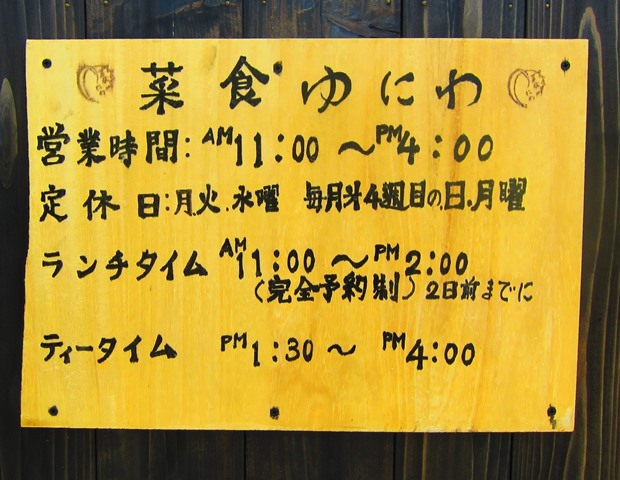 菜食ゆにわ
営業時間:AM11:00～PM4:00
定休日:月.火.水曜 毎月第4週目の日.月曜
ランチタイム AM11:00～PM2:00
(完全予約制)2日前までに
ティータイム PM1:30～PM4:00